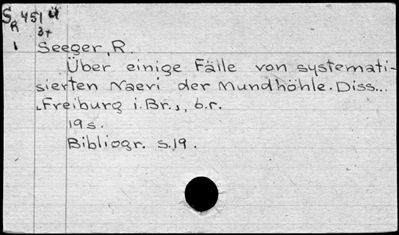 S 451 ü
R 3+
1 Seeger, R.
Über einige Fälle von systemati-
sierten Naevi der Mundhöhle. Diss...
Freiburg i. Br., b.r.
19 s.
Bibliogr. s.19.